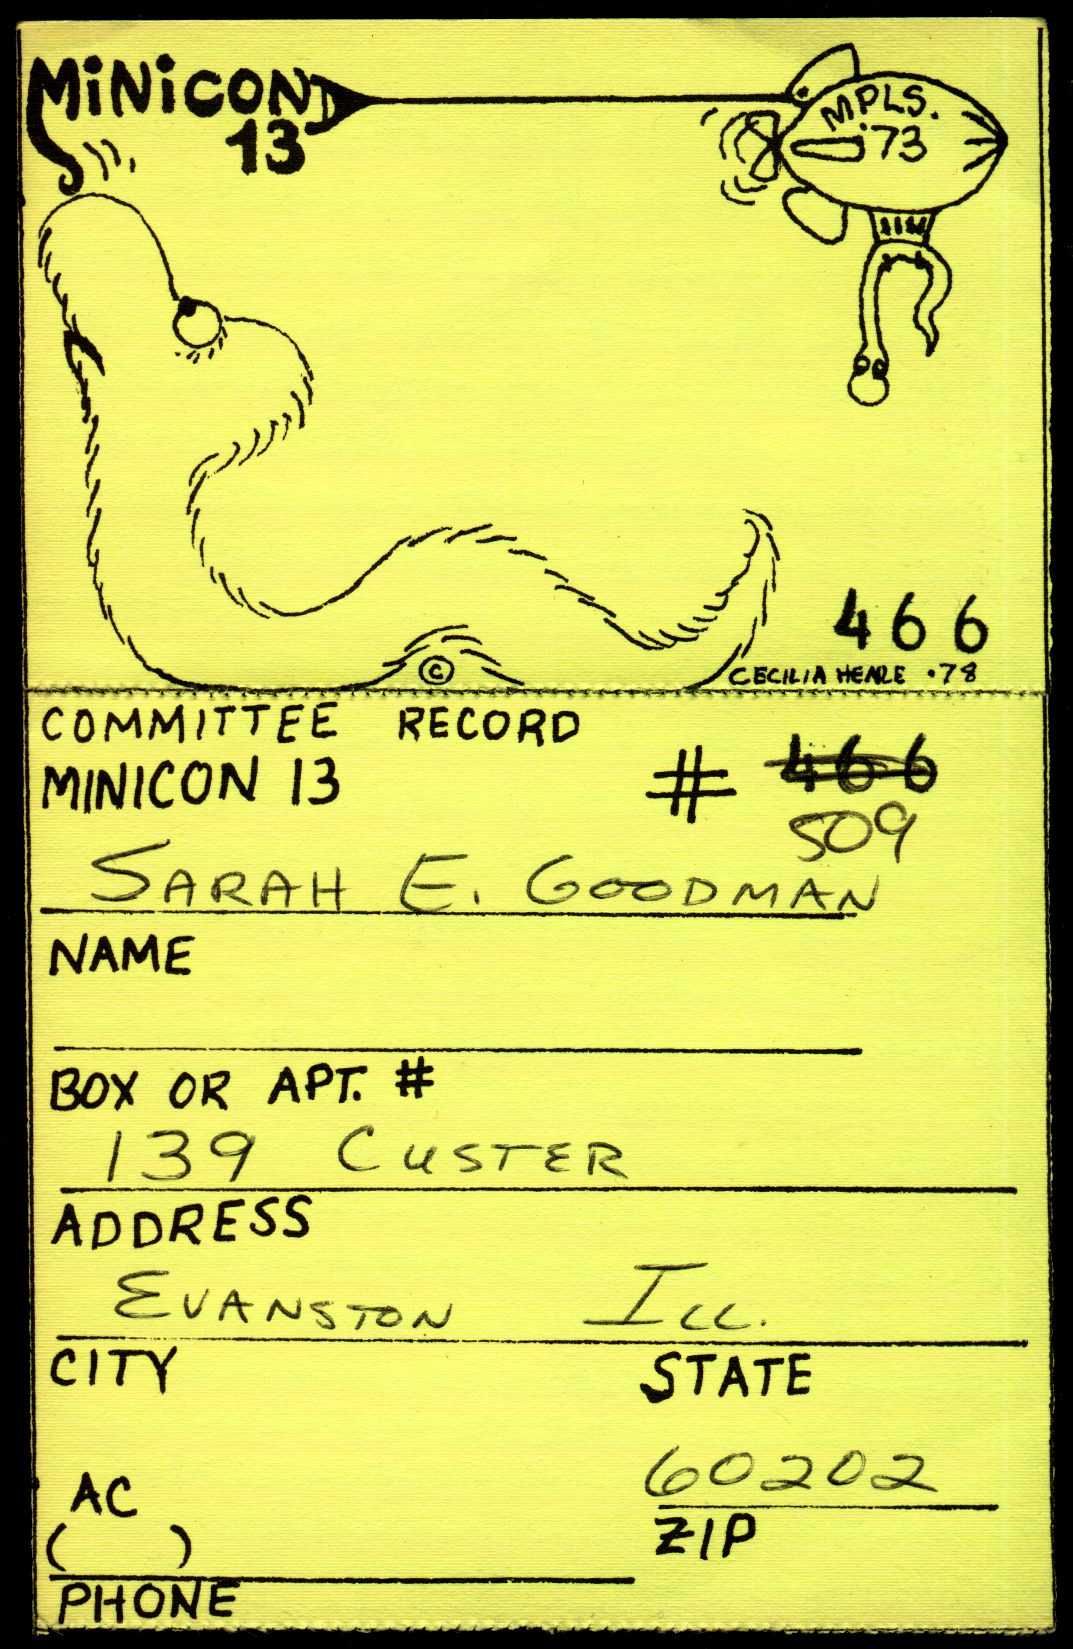 MiNiCON
13
MPLS.
'73
466
©
CECILIA HEALE •78
COMMITTEE RECORD
MINICON 13 # 466
509
SARAH E. GOODMAN
NAME
BOX OR APT. #
139 CUSTER
ADDRESS
EVANSTON ILL.
CITY STATE
60202
AC
( ) ZIP
PHONE